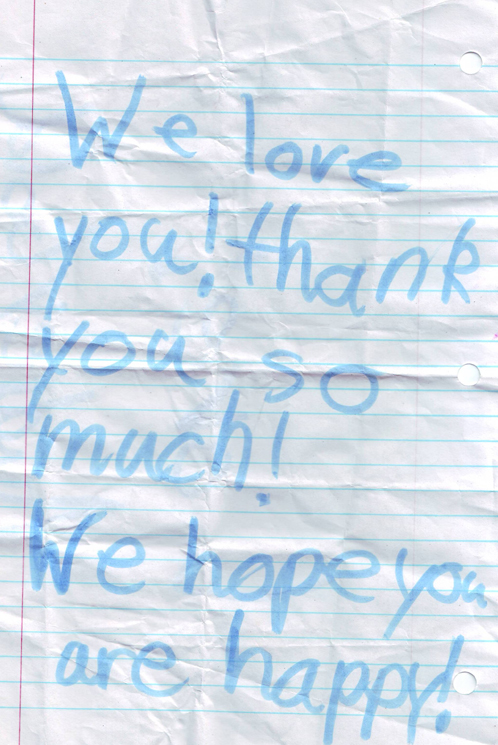 We love
you! thank
you so
much!
We hope you
are happy!